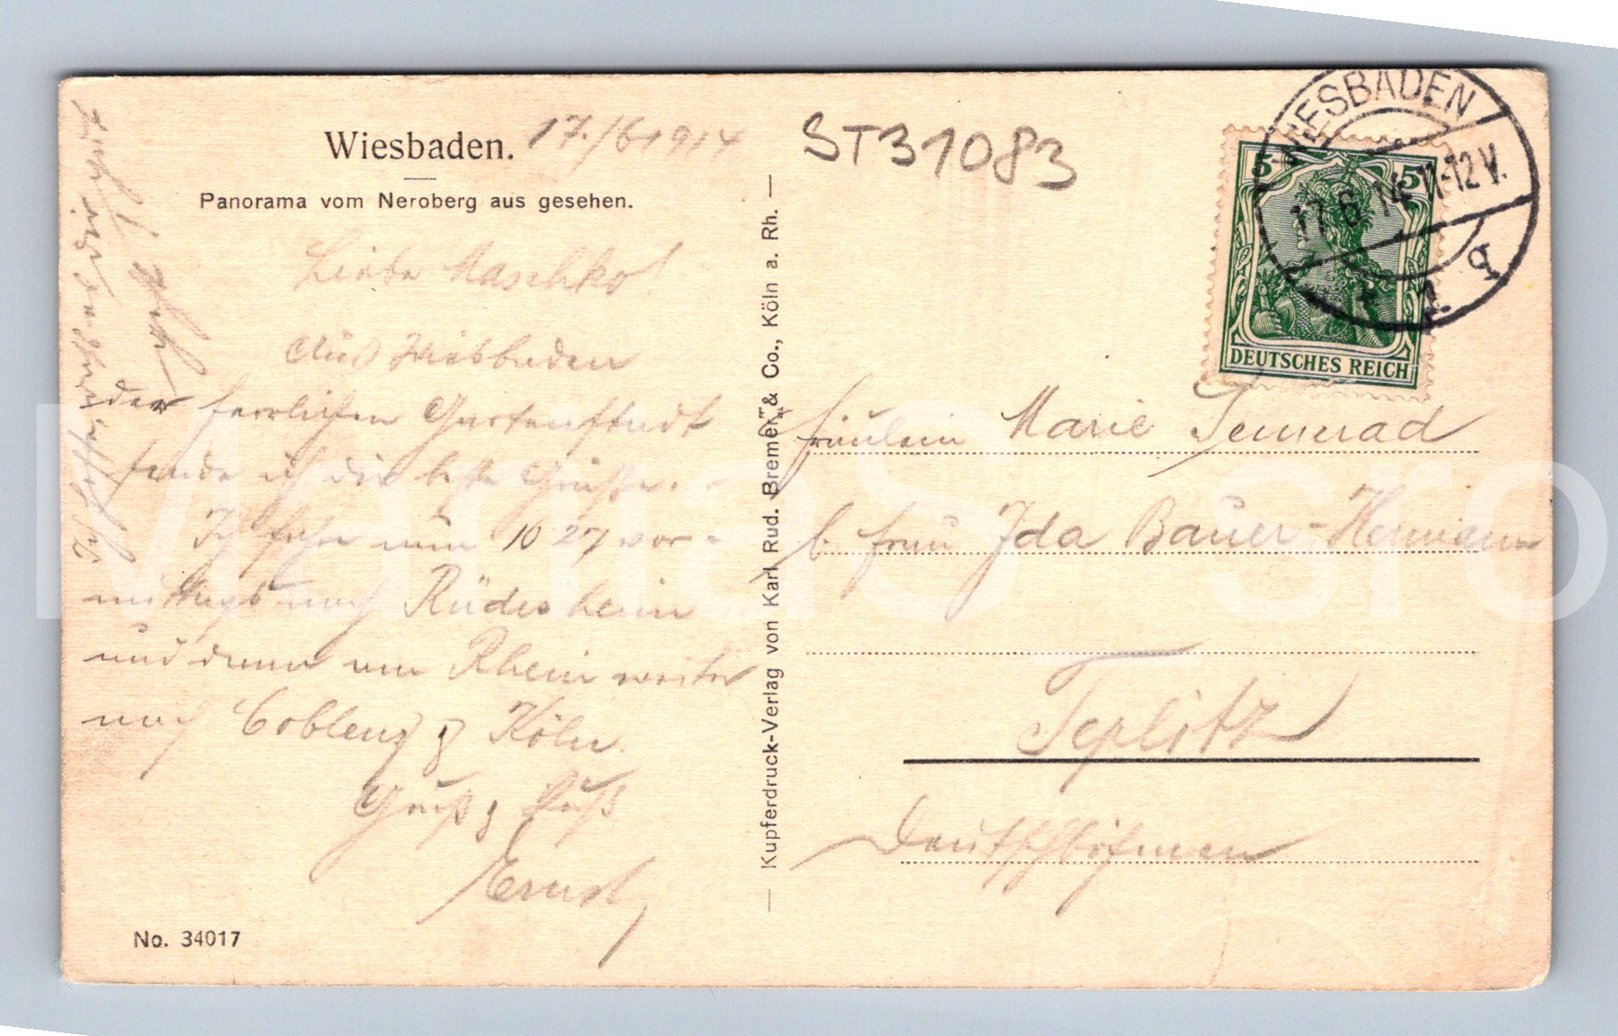 Wiesbaden. 17./6 1914
Panorama vom Neroberg aus gesehen.
Liebe Maschko!
Aus Wiesbaden
der herrlichen Gartenstadt
sende ich die beste Grüße.
Ich fahre nun 10 27 vor-
mittags nach Rüdesheim
und dann am Rhein weiter
nach Coblenz & Köln.
Gruß & Kuß
Ernst
Ich hoffe, daß es dir
gut geht
No. 34017
— Kupferdruck-Verlag von Karl Rud. Bremer & Co., Köln a. Rh. —
ST31083
WIESBADEN
17.6.14.11-12V.
1. q
5 5
DEUTSCHES REICH
Fräulein Marie Semerad
b. Frau Ida Bauer-Hermann
Teplitz
Deutschböhmen
Maus sro